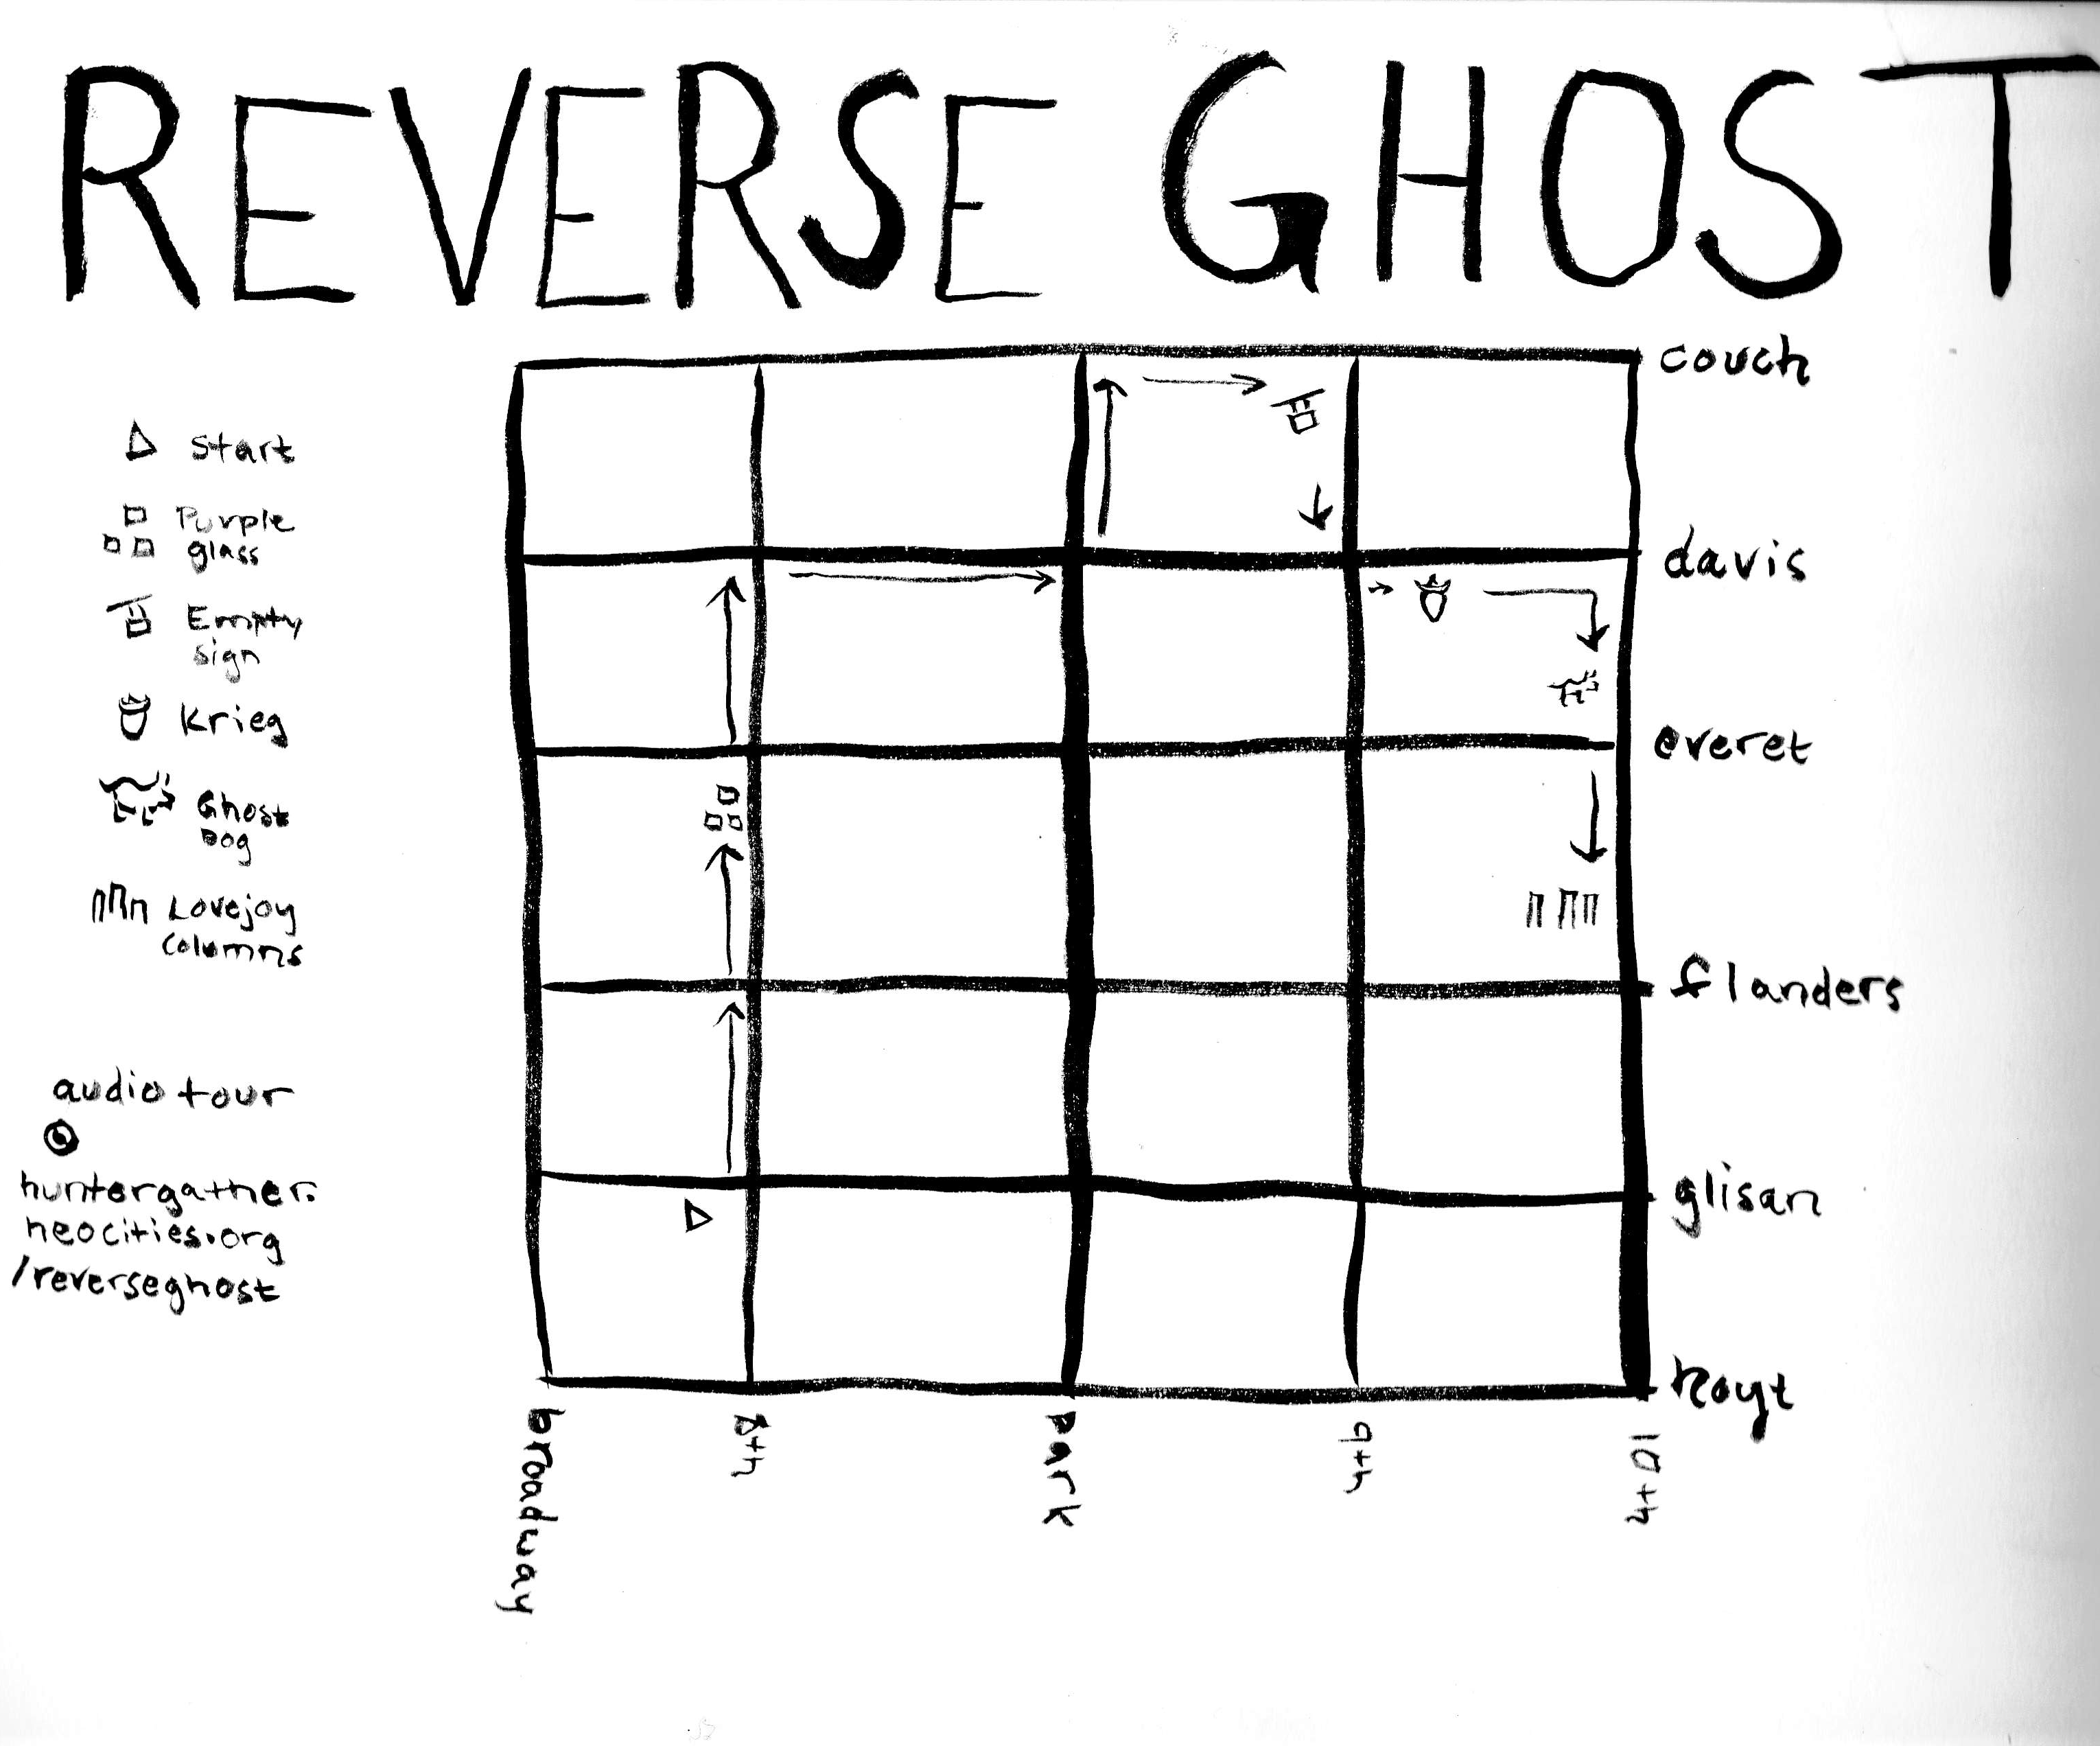 REVERSE GHOST
Start
Purple
glass
Empty
sign
Krieg
Ghost
Dog
Lovejoy
Columns
audio tour
huntergather.
neocities.org
/reverseghost
couch
davis
everet
flanders
glisan
hoyt
broadway
8th
park
9th
10th